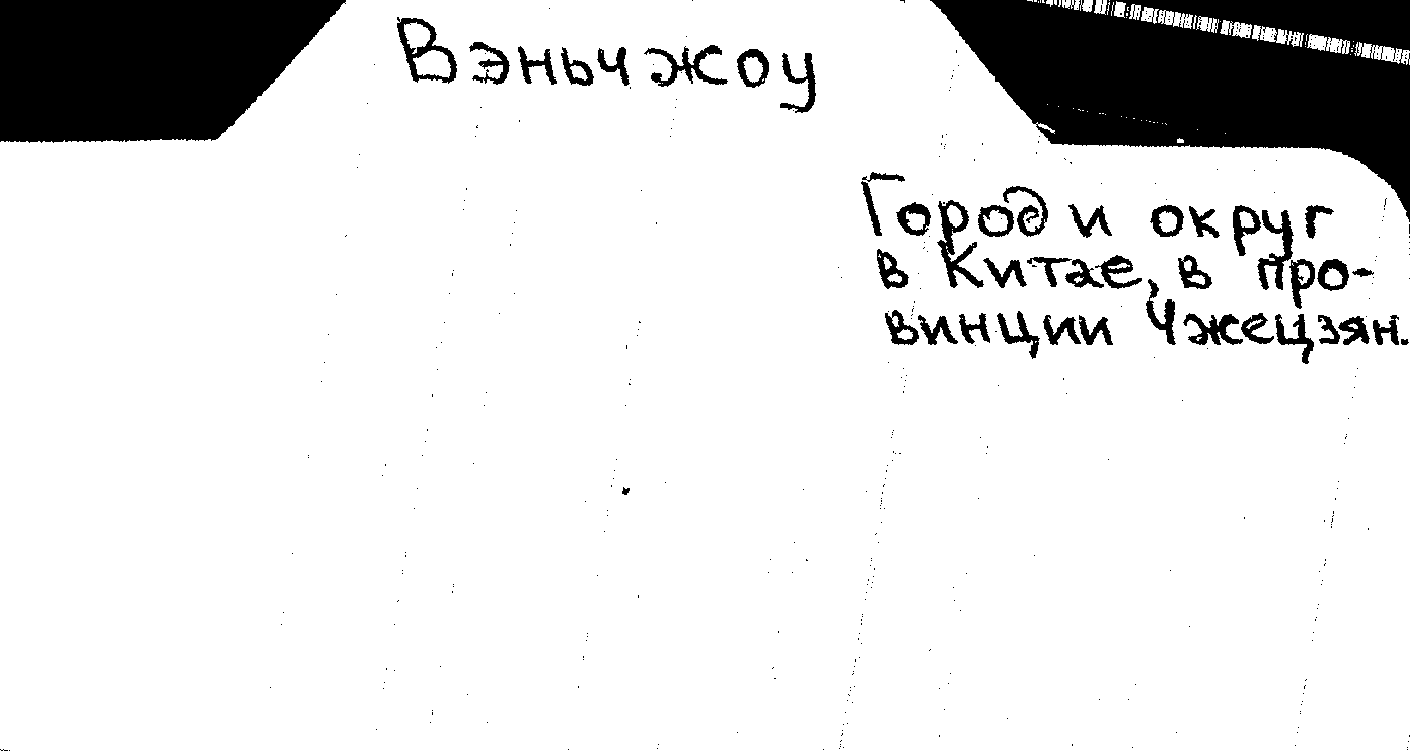 Вэньчжоу
Город и округ
в Китае, в про-
винции Чжецзян.